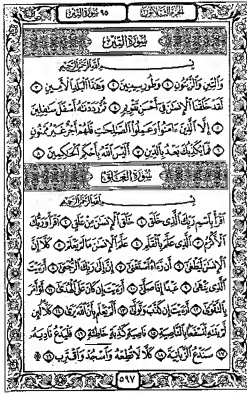 الجزء الثلاثون ٩٥ سورة التين
سورة التين
بسم الله الرحمن الرحيم
والتين والزيتون ١ وطور سينين ٢ وهذا البلد الأمين ٣
لقد خلقنا الإنسن في أحسن تقويم ٤ ثم رددنه أسفل سفلين
٥ إلا الذين ءامنوا وعملوا الصلحت فلهم أجر غير ممنون
٦ فما يكذبك بعد بالدين ٧ أليس الله بأحكم الحكمين ٨
سورة العلق
بسم الله الرحمن الرحيم
اقرأ باسم ربك الذي خلق ١ خلق الإنسن من علق ٢ اقرأ وربك
الأكرم ٣ الذي علم بالقلم ٤ علم الإنسن ما لم يعلم ٥ كلا إن
الإنسن ليطغى ٦ أن رءاه استغنى ٧ إن إلى ربك الرجعى ٨ أرءيت
الذي ينهى ٩ عبدا إذا صلى ١٠ أرءيت إن كان على الهدى ١١ أو أمر
بالتقوى ١٢ أرءيت إن كذب وتولى ١٣ ألم يعلم بأن الله يرى ١٤ كلا لئن
لم ينته لنسفعا بالناصية ١٥ ناصية كذبة خاطئة ١٦ فليدع ناديه
١٧ سندع الزبانية ١٨ كلا لا تطعه واسجد واقترب ۩ ١٩
٥٩٧